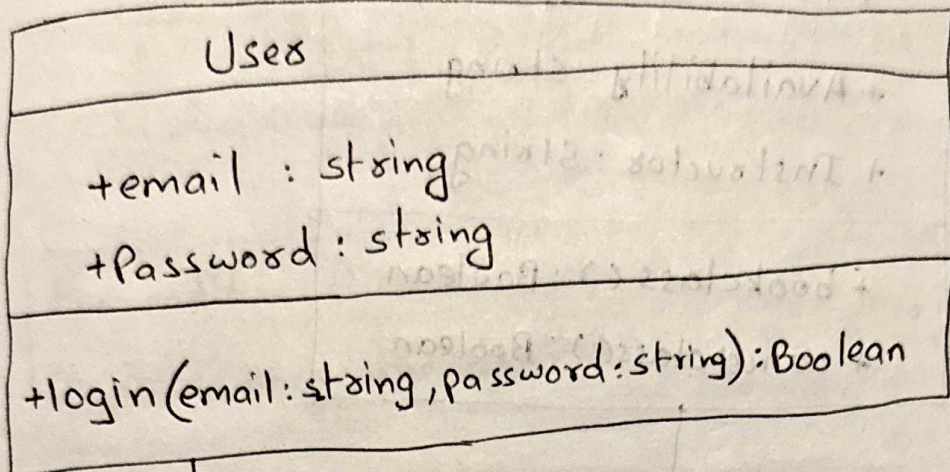 User
+email : string
+Password : string
+login(email: string, password: string): Boolean